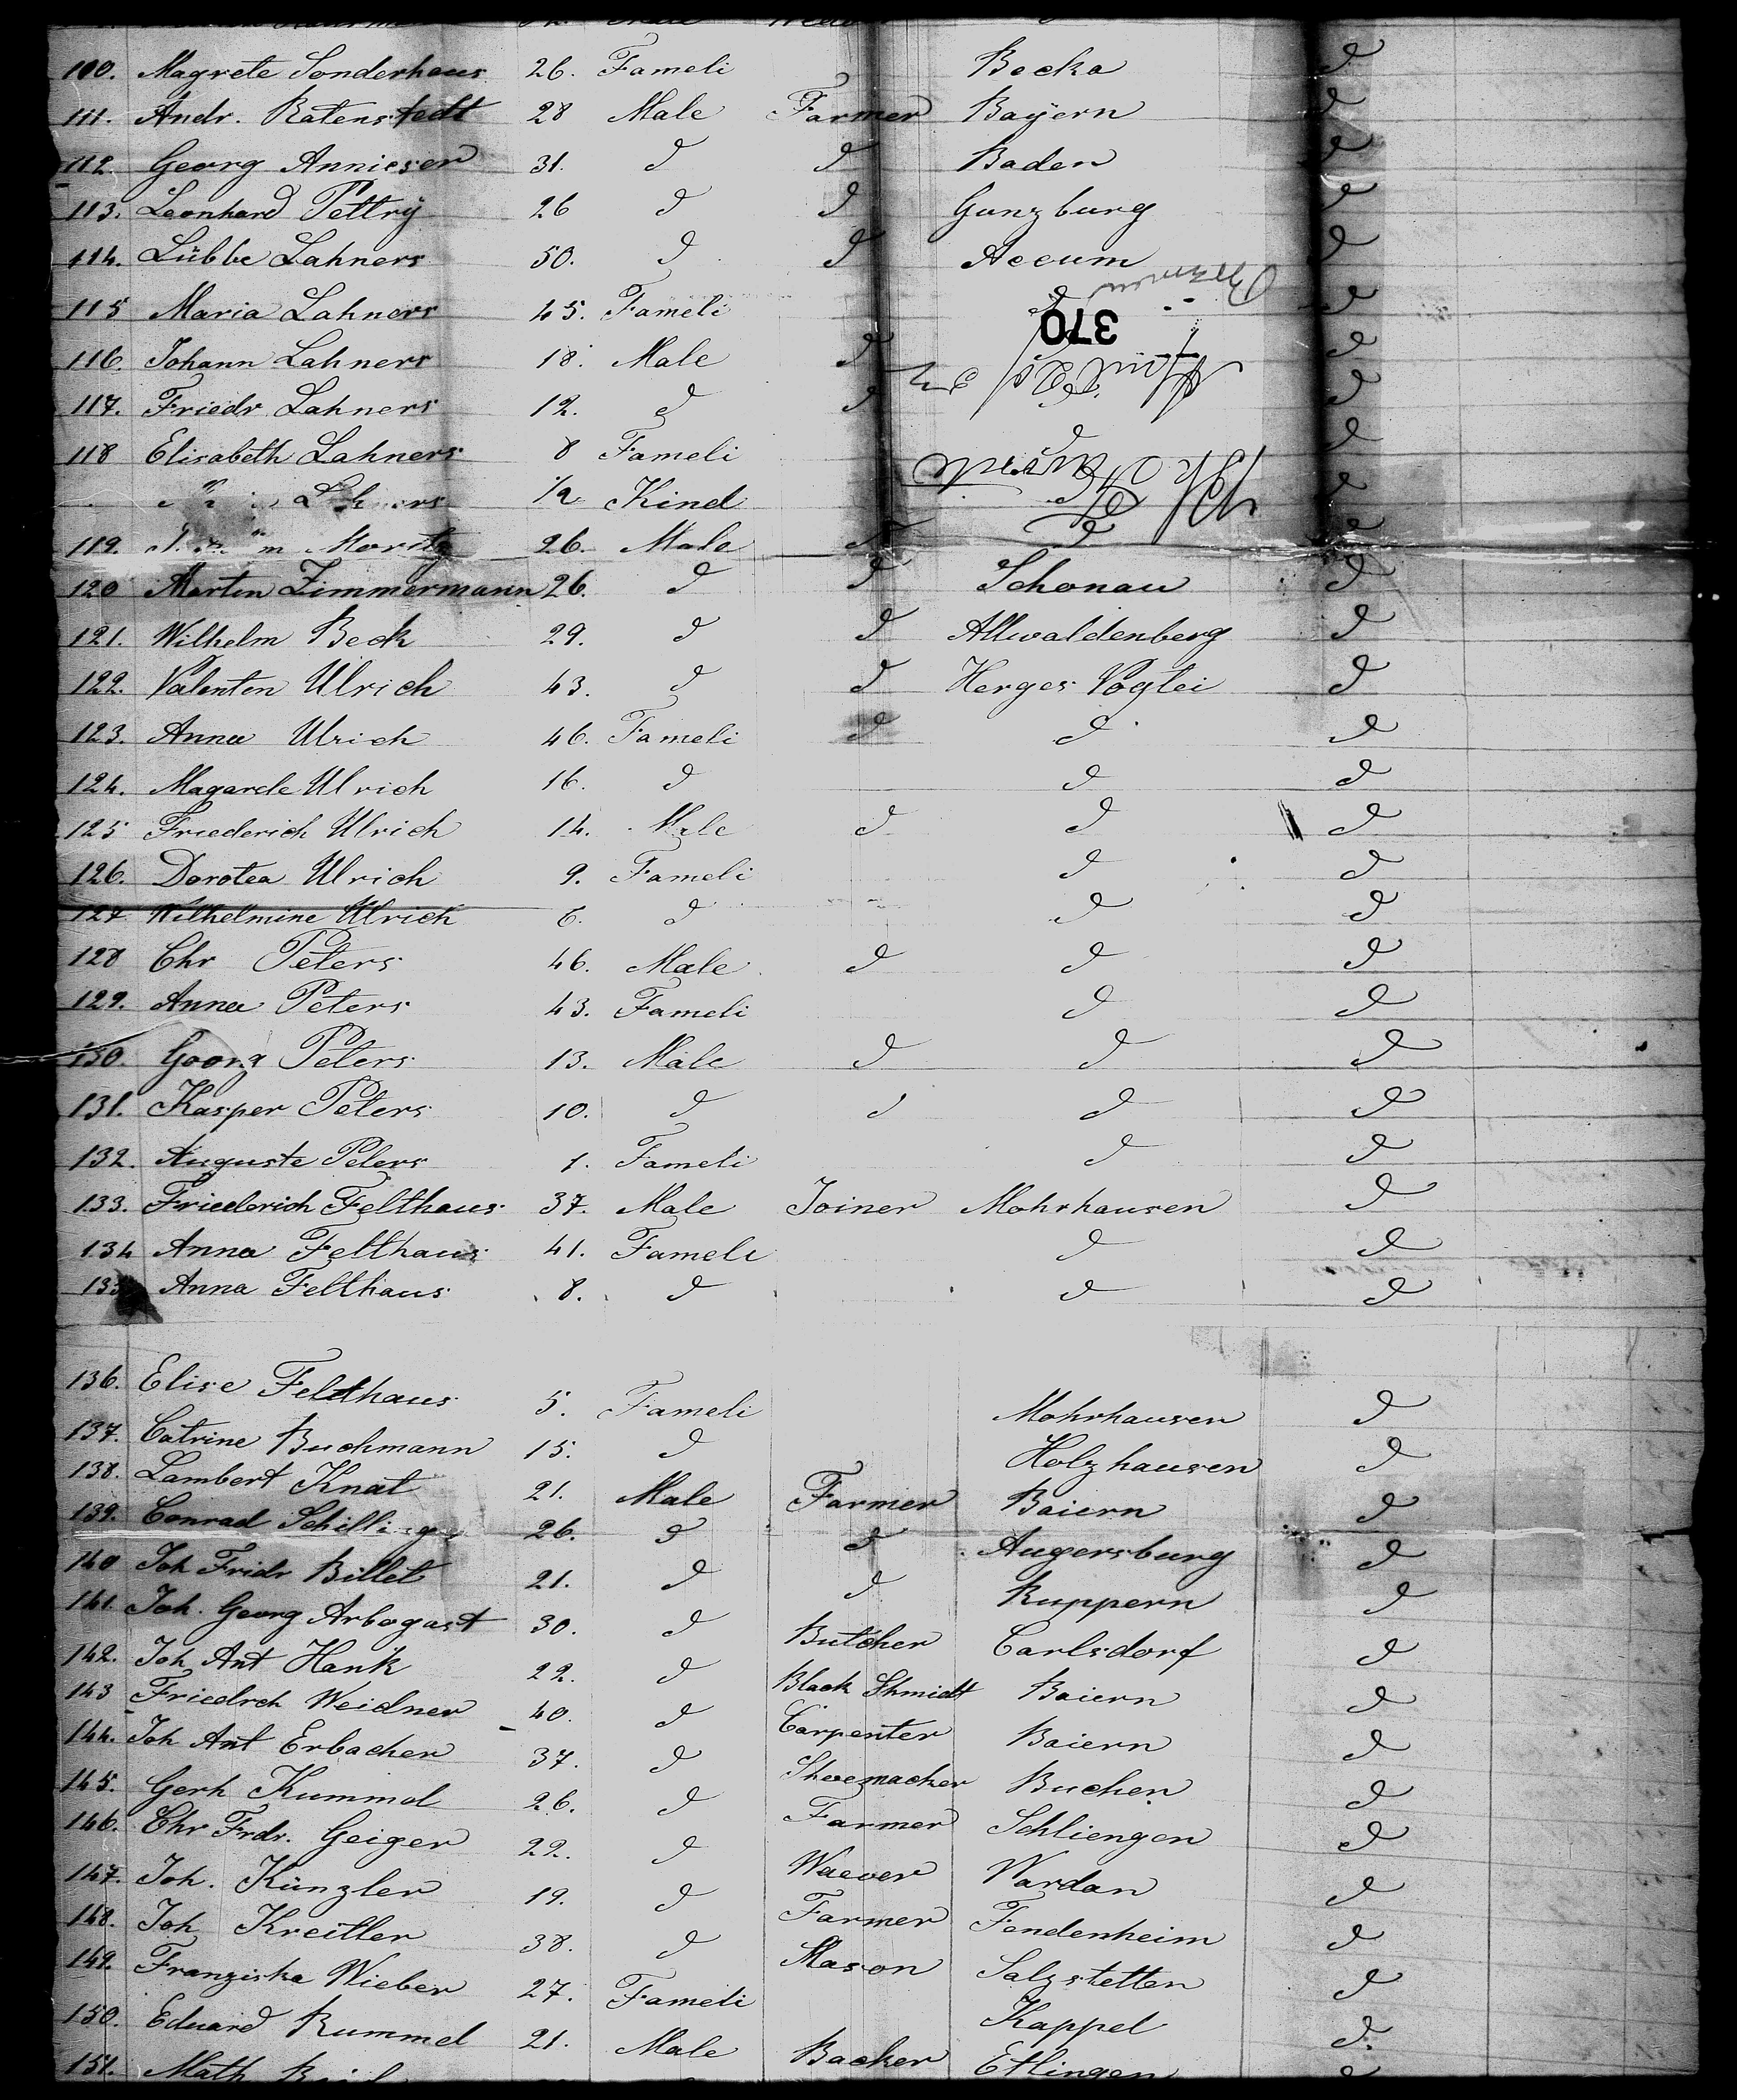 110. Magrete Sonderhaus 26. Fameli Becka d
111. Andr. Ratenstedt 28 Male Farmer Bayern d
112. Georg Annieser 31. d d Baden d
113. Leonhard Pettrÿ 26 d d Gunzburg d
114. Lübbe Lahners 50. d d Accum d
115 Maria Lahners 45. Fameli d d
370
116. Johann Lahners 18. Male d d
117. Friedr. Lahners 12. d d d
118 Elisabeth Lahners 8 Fameli d d
1/2 Kind d
119. Moritz 26. Male d d d
120 Martin Zimmermann 26. d d Schonau d
121. Wilhelm Beck 29. d d Allwaldenberg d
122. Valenten Ulrich 43. d d Herges Voglei d
123. Anna Ulrich 46. Fameli d d d
124. Magarele Ulrich 16. d d d
125 Friederich Ulrich 14. Male d d d
126. Dorotea Ulrich 9. Fameli d d
127 Wilhelmine Ulrich 6. d d d
128 Chr Peters 46. Male d d d
129. Anna Peters 43. Fameli d d
130. Georg Peters 13. Male d d d
131. Kasper Peters 10. d d d d
132. Auguste Peters 1. Fameli d d
133. Friederich Felthaus 37. Male Joiner Mohrhausen d
134 Anna Felthaus 41. Fameli d d
135 Anna Felthaus 8. d d d
136. Elise Feldthaus 5. Fameli Mohrhausen d
137. Catrine Buchmann 15. d Holzhausen d
138. Lambert Knat 21. Male Farmer Baiern d
139. Conrad Schilling 26. d d Augersburg d
140 Joh Fridr Billet 21. d d Ruppern d
141. Joh. Georg Arbogast 30. d Butcher Carlsdorf d
142. Joh Ant Hank 22. d Black Shmidt Baiern d
143 Friedrch Weidner 40. d Carpenter Baiern d
144. Joh Ant Erbacher 37. d Shoemacher Buchen d
145. Gerh Kummel 26. d Farmer Schliengen d
146. Chr Frdr. Geiger 22. d Waever Wardan d
147. Joh. Künzler 19. d Farmer Fendenheim d
148. Joh Kreitler 38. d Mason Salzstetten d
149. Franziska Wieber 27. Fameli Kappel d
150. Eduard Rummel 21. Male Backer Etlingen d
151. Math